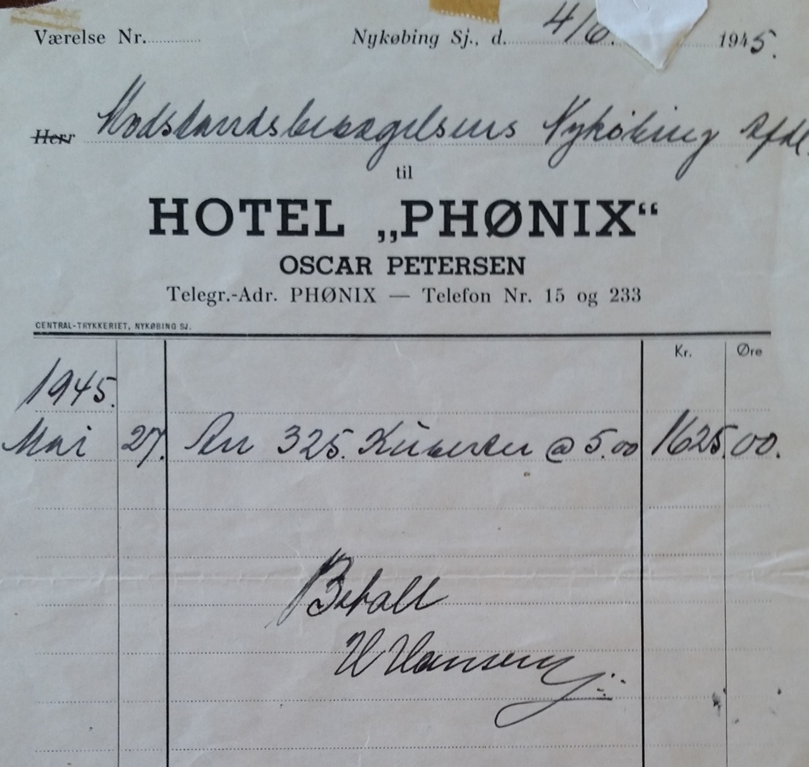 Værelse Nr. Nykøbing Sj., d. 4/6. 1945.
Herr Modstandsbevægelsens Nykøbing Afdl.
til
HOTEL „PHØNIX“
OSCAR PETERSEN
Telegr.-Adr. PHØNIX — Telefon Nr. 15 og 233
CENTRAL-TRYKKERIET, NYKØBING SJ.
Kr. Øre
1945.
Mai 27. An 325. Kuverter @ 5.00 1625.00.
Betalt
H Hansen